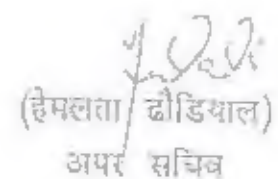 (हेमलता ढौडियाल)
अपर सचिव